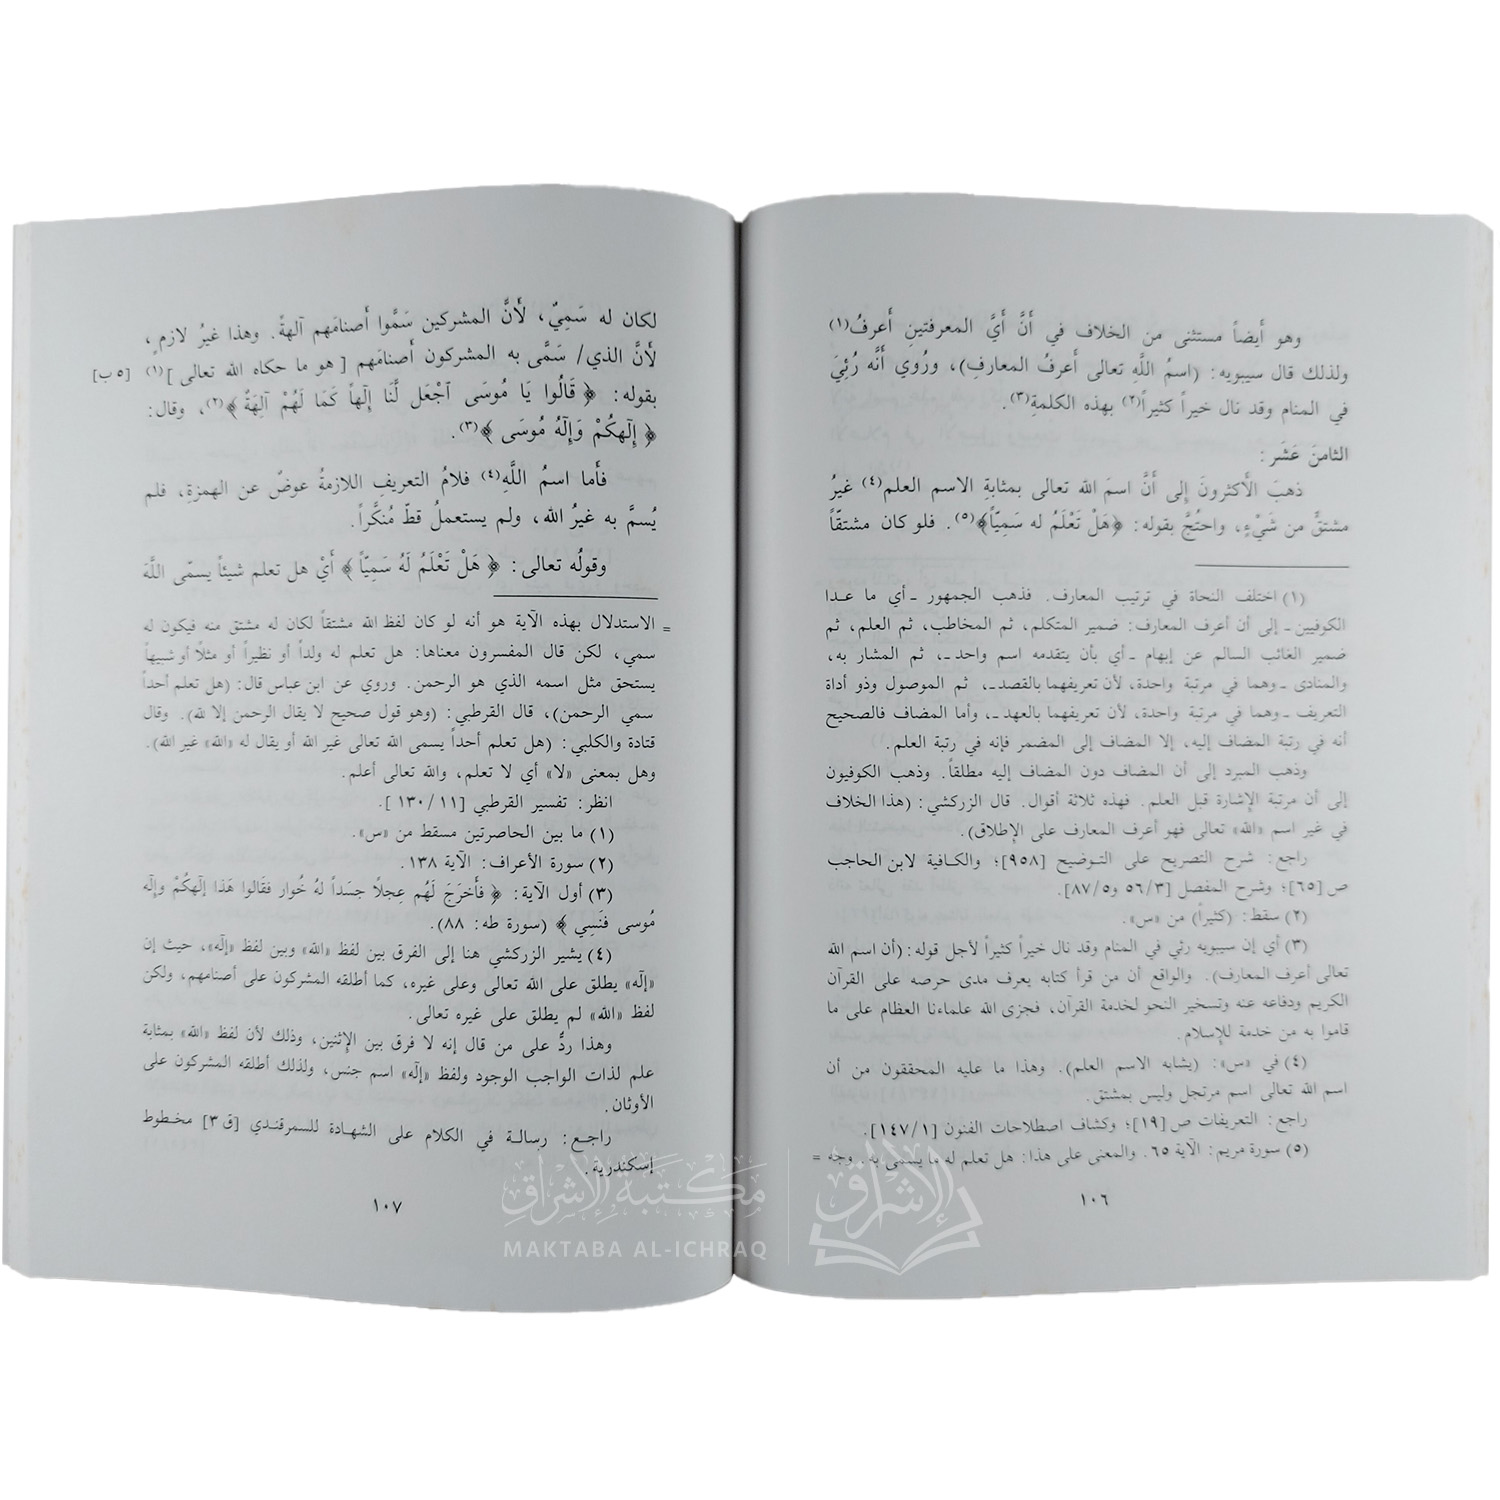 وهو أَيضاً مستثنى من الخلاف في أَنَّ أَيَّ المعرفتين أَعرفُ(١)
ولذلك قال سيبويه: (اسمُ اللَّهِ تعالى أَعرفُ المعارفِ)، ورُوي أَنَّه رُئِيَ
في المنام وقد نال خيراً كثيراً(٢) بهذه الكلمةِ(٣).
الثامنَ عَشَر:
ذهبَ الأَكثرونَ إِلى أَنَّ اسمَ الله تعالى بمثابةِ الاسم العلم(٤) غيرُ
مشتقٍّ من شَيْءٍ، واحتُجَّ بقوله: ﴿هَلْ تَعْلَمُ له سَمِيّاً﴾(٥). فلو كان مشتقّاً
(١) اختلف النحاة في ترتيب المعارف. فذهب الجمهور ـ أي ما عـدا
الكوفيين ـ إلى أن أعرف المعارف: ضمير المتكلم، ثم المخاطب، ثم العلم، ثم
ضمير الغائب السالم عن إبهام ـ أي بأن يتقدمه اسم واحد ـ، ثم المشار به،
والمنادى ـ وهما في مرتبة واحدة، لأن تعريفهما بالقصد ـ، ثم الموصول وذو أداة
التعريف ـ وهما في مرتبة واحدة، لأن تعريفهما بالعهد ـ، وأما المضاف فالصحيح
أنه في رتبة المضاف إليه، إلا المضاف إلى المضمر فإنه في رتبة العلم.
وذهب المبرد إلى أن المضاف دون المضاف إليه مطلقاً. وذهب الكوفيون
إلى أن مرتبة الإشارة قبل العلم. فهذه ثلاثة أقوال. قال الزركشي: (هذا الخلاف
في غير اسم «الله» تعالى فهو أعرف المعارف على الإطلاق).
راجع: شرح التصريح على التـوضيح [٩٥٨]؛ والكـافية لابن الحاجب
ص [٦٥]؛ وشرح المفصل [٥٦/٣ و٨٧/٥].
(٢) سقط: (كثيراً) من «س».
(٣) أي إن سيبويه رئي في المنام وقد نال خيراً كثيراً لأجل قوله: (أن اسم الله
تعالى أعرف المعارف). والواقع أن من قرأ كتابه يعرف مدى حرصه على القرآن
الكريم ودفاعه عنه وتسخير النحو لخدمة القرآن، فجزى الله علماءنا العظام على ما
قاموا به من خدمة للإسلام.
(٤) في «س»: (يشابه الاسم العلم). وهذا ما عليه المحققون من أن
اسم الله تعالى اسم مرتجل وليس بمشتق.
راجع: التعريفات ص [١٩]؛ وكشاف اصطلاحات الفنون [١٤٧/١].
(٥) سورة مريم: الآية ٦٥. والمعنى على هذا: هل تعلم له ما يسمى به. وجه =
١٠٦
لكان له سَمِيٌ، لأَنَّ المشركين سَمَّوا أَصنامَهم آلهةً. وهذا غيرُ لازمٍ،
لأَنَّ الذي/ سَمَّى به المشركون أَصنامَهم [هو ما حكاه الله تعالى](١) [٥ ب]
بقوله: ﴿ قَالُوا يَا مُوسَى ٱجْعَل لَنَا إِلَٰهاً كَمَا لَهُمْ آلِهَةٌ ﴾(٢)، وقال:
﴿ إِلَٰهكُمْ وَإِلَٰهُ مُوسَى ﴾(٣).
فأَما اسمُ اللَّهِ(٤) فلامُ التعريفِ اللازمةُ عوضٌ عن الهمزةِ، فلم
يُسمَّ به غيرُ الله، ولم يستعملُ قطّ مُنكَّراً.
وقولُه تعالى: ﴿ هَلْ تَعْلَمُ لَهُ سَمِيّاً ﴾ أَيْ هل تعلم شيئاً يسمّى اللَّهَ
= الاستدلال بهذه الآية هو أنه لو كان لفظ الله مشتقاً لكان له مشتق منه فيكون له
سمي، لكن قال المفسرون معناها: هل تعلم له ولداً أو نظيراً أو مثلاً أو شبيهاً
يستحق مثل اسمه الذي هو الرحمن. وروي عن ابن عباس قال: (هل تعلم أحداً
سمي الرحمن)، قال القرطبي: (وهو قول صحيح لا يقال الرحمن إلا لله). وقال
قتادة والكلبي: (هل تعلم أحداً يسمى الله تعالى غير الله أو يقال له «الله» غير الله).
وهل بمعنى «لا» أي لا تعلم، والله تعالى أعلم.
انظر: تفسير القرطبي [١٣٠/١١].
(١) ما بين الحاصرتين مسقط من «س».
(٢) سورة الأعراف: الآية ١٣٨.
(٣) أول الآية: ﴿ فَأَخرَجَ لَهُم عِجلاً جسَداً لهُ خُوار فقَالوا هَذا إلٰهكُمْ وإلٰه
مُوسى فنَسِي ﴾ (سورة طه: ٨٨).
(٤) يشير الزركشي هنا إلى الفرق بين لفظ «الله» وبين لفظ «إلٰه»، حيث إن
«إلٰه» يطلق على الله تعالى وعلى غيره، كما أطلقه المشركون على أصنامهم، ولكن
لفظ «الله» لم يطلق على غيره تعالى.
وهذا ردٌّ على من قال إنه لا فرق بين الإثنين، وذلك لأن لفظ «الله» بمثابة
علم لذات الواجب الوجود ولفظ «إلٰه» اسم جنس، ولذلك أطلقه المشركون على
الأوثان.
راجـع: رسـالـة في الكلام على الشهـادة للسمرقندي [ق ٣] مخـطوط
إسكندرية.
١٠٧
مكتبة الإشراق
MAKTABA AL-ICHRAQ
الإشراق